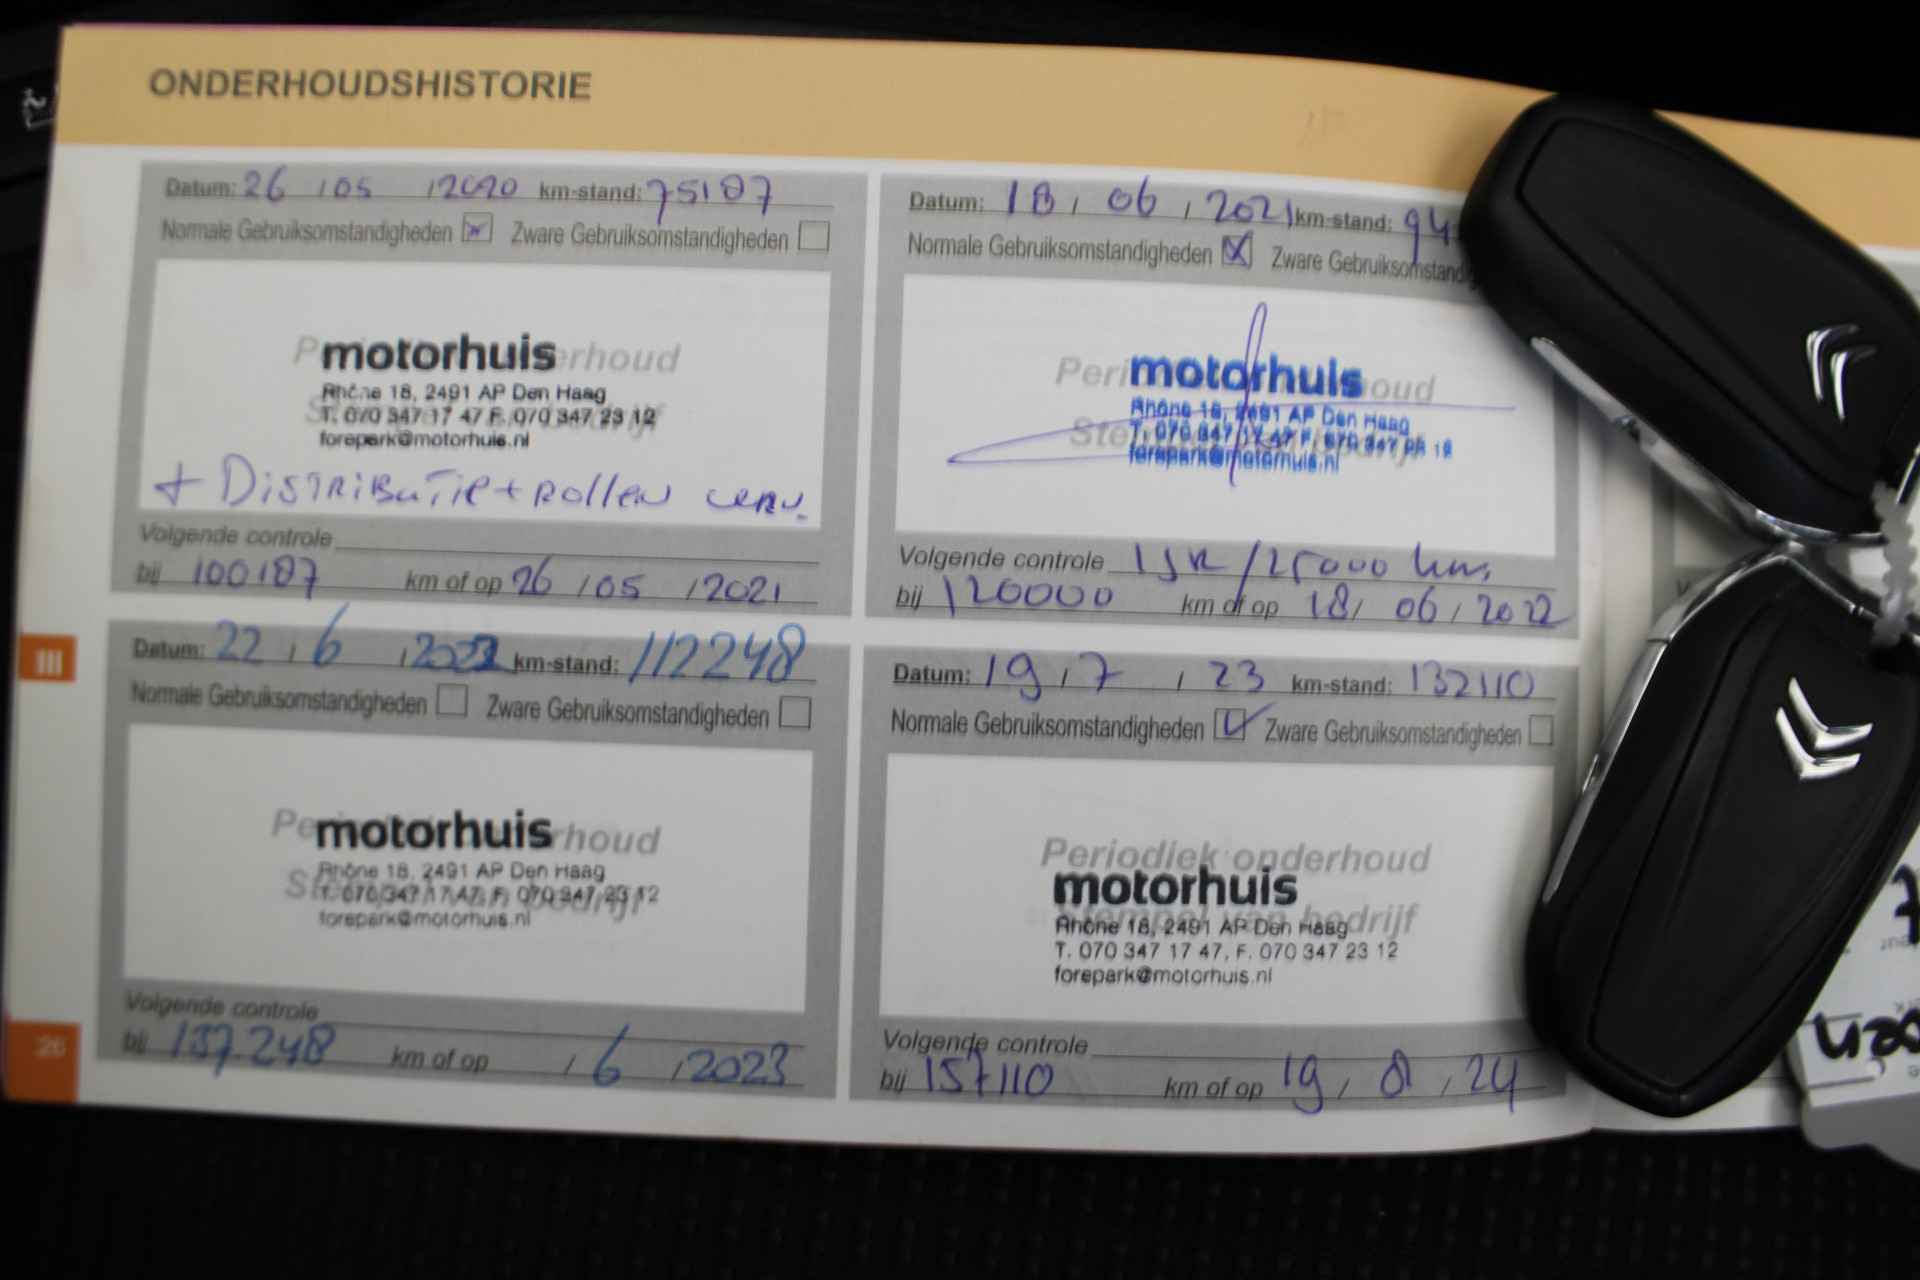 ONDERHOUDSHISTORIE
Datum: 26 / 05 / 2020 km-stand: 75187
Normale Gebruiksomstandigheden Zware Gebruiksomstandigheden
motorhuis
Rhône 18, 2491 AP Den Haag
T. 070 347 17 47 F. 070 347 23 12
forepark@motorhuis.nl
+ Distributie + rollen verv.
Volgende controle
bij 100187 km of op 26 / 05 / 2021
Datum: 18 / 06 / 2021 km-stand: 94
Normale Gebruiksomstandigheden Zware Gebruiksomstandig
motorhuis
Rhône 18, 2491 AP Den Haag
T. 070 347 17 47 F. 070 347 23 12
forepark@motorhuis.nl
Volgende controle 1 JR / 25000 kms
bij 120000 km of op 18 / 06 / 2022
III
Datum: 22 / 6 / 2022 km-stand: 112248
Normale Gebruiksomstandigheden Zware Gebruiksomstandigheden
motorhuis
Rhône 18, 2491 AP Den Haag
T. 070 347 17 47, F. 070 347 23 12
forepark@motorhuis.nl
Volgende controle
bij 137.248 km of op / 6 / 2023
Datum: 19 / 7 / 23 km-stand: 132110
Normale Gebruiksomstandigheden Zware Gebruiksomstandigheden
Periodiek onderhoud
motorhuis
Stempel van bedrijf
Rhône 18, 2491 AP Den Haag
T. 070 347 17 47, F. 070 347 23 12
forepark@motorhuis.nl
Volgende controle
bij 157110 km of op 19 / 01 / 24
26